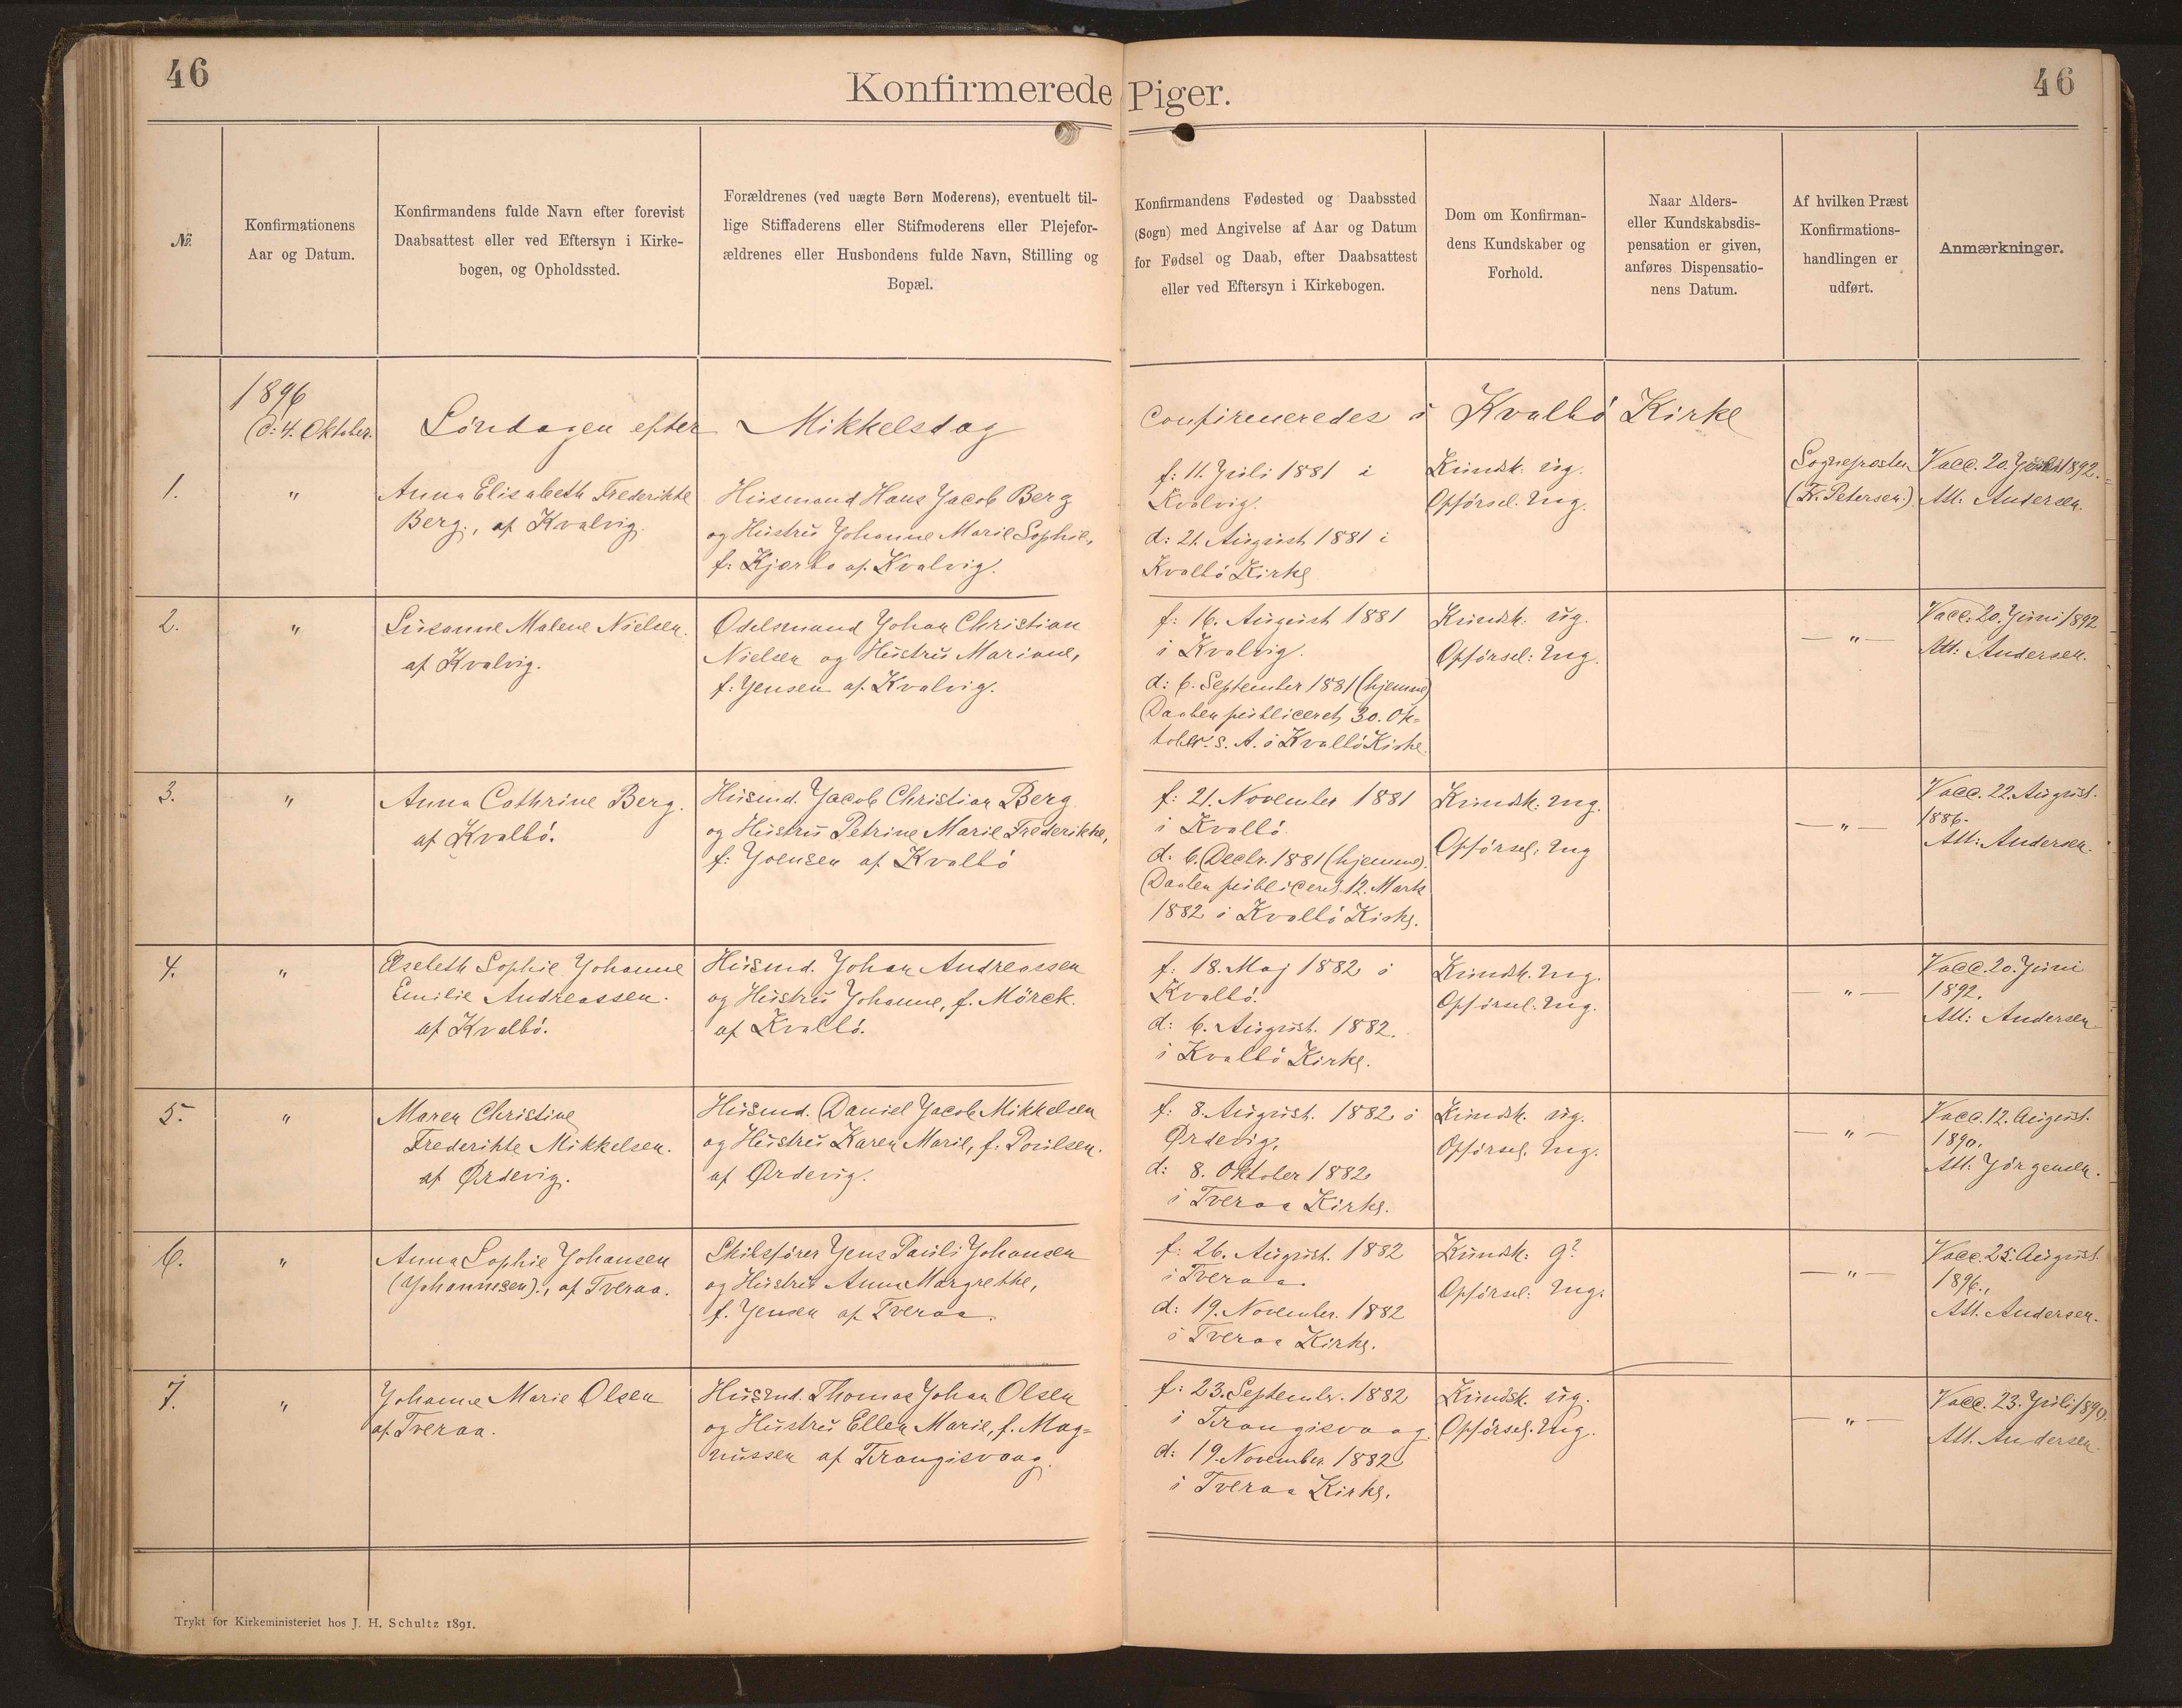 46
Konfirmerede Piger.
46
№
Konfirmationens
Aar og Datum.
Konfirmandens fulde Navn efter forevist
Daabsattest eller ved Eftersyn i Kirke-
bogen, og Opholdssted.
Forældrenes (ved uægte Børn Moderens), eventuelt til-
lige Stiffaderens eller Stifmoderens eller Plejefor-
ældrenes eller Husbondens fulde Navn, Stilling og
Bopæl.
Konfirmandens Fødested og Daabssted
(Sogn) med Angivelse af Aar og Datum
for Fødsel og Daab, efter Daabsattest
eller ved Eftersyn i Kirkebogen.
Dom om Konfirman-
dens Kundskaber og
Forhold.
Naar Alders-
eller Kundskabsdis-
pensation er given,
anføres Dispensatio-
nens Datum.
Af hvilken Præst
Konfirmations-
handlingen er
udført.
Anmærkninger.
1896
d: 4. Oktober.
Söndagen efter Mikkelsdag confirmeredes i Kvalbö Kirke
1.
"
Anna Elisabeth Frederikke
Berg., af Kvalvig.
Husmand Hans Jacob Berg
og Hustru Johanne Marie Sophie,
f: Kjærbo af Kvalvig.
f: 11. Juli 1881 i
Kvalvig.
d: 21. August 1881 i
Kvalbö Kirke
Kundsk: ug.
Opförsel: mg.
Sognepræsten
(Fr. Petersen.)
Vacc. 20. Juni 1892.
Att: Andersen.
2.
"
Susanne Malene Nielsen.
af Kvalvig.
Odelsmand Johan Christian
Nielsen og Hustru Mariane,
f: Jensen af Kvalvig.
f: 16. August 1881
i Kvalvig.
d: 6. September 1881 (hjemme)
Daaben publiceret 30. Ok-
tober s. A. i Kvalbö Kirke.
Kundsk: ug.
Opförsel: mg.
— " —
Vacc: 20. Juni 1892
Att: Andersen.
3.
"
Anna Cathrine Berg.
af Kvalbö.
Husmd. Jacob Christian Berg
og Hustru Petrine Marie Frederikke,
f: Joensen af Kvalbö
f: 21. November 1881
i Kvalbö.
d: 6. Decbr. 1881 (hjemme).
Daaben publiceret 12. Marts
1882 i Kvalbö Kirke.
Kundsk: mg.
Opförsel: mg
— " —
Vacc. 22. August.
1886.
Att: Andersen.
4.
"
Elsebeth Sophie Johanne
Emilie Andreassen.
af Kvalbö.
Husmd. Johan Andreassen
og Hustru Johanne, f. Mörck.
af Kvalbö.
f: 18. Maj 1882 i
Kvalbö.
d: 6. August. 1882.
i Kvalbö Kirke.
Kundsk. mg.
Opförsel: mg.
— " —
Vacc. 20. Juni
1892.
Att: Andersen
5.
"
Maren Christine
Frederikke Mikkelsen.
af Ørdevig.
Husmd. Daniel Jacob Mikkelsen
og Hustru Karen Marie, f. Poulsen.
af Ørdevig.
f: 8. August. 1882 i
Ørdevig,
d: 8. Oktober 1882
i Tveraa Kirke.
Kundsk. ug.
Opförsel. mg.
— " —
Vacc. 12. August.
1890.
Att: Jörgensen.
6.
"
Anna Sophie Johansen
(Johannesen)., af Tveraa.
Skibsförer Jens Pauli Johansen
og Hustru Anna Margrethe,
f. Jensen af Tveraa.
f: 26. August. 1882
i Tveraa.
d: 19. November. 1882
i Tveraa Kirke.
Kundsk: g?
Opförsel: mg.
— " —
Vacc. 25. August.
1896.,
Att. Andersen.
7.
"
Johanne Marie Olsen
af Tveraa.
Husmd. Thomas Johan Olsen
og Hustru Ellen Marie, f. Mag=
nussen af Trangisvaag.
f: 23. Septembr. 1882
i Trangisvaag.
d: 19. November. 1882
i Tveraa Kirke.
Kundsk. ug.
Opförsel. mg.
— " —
Vacc. 23. Juli 1890.
Att. Andersen.
Trykt for Kirkeministeriet hos J. H. Schultz 1891.